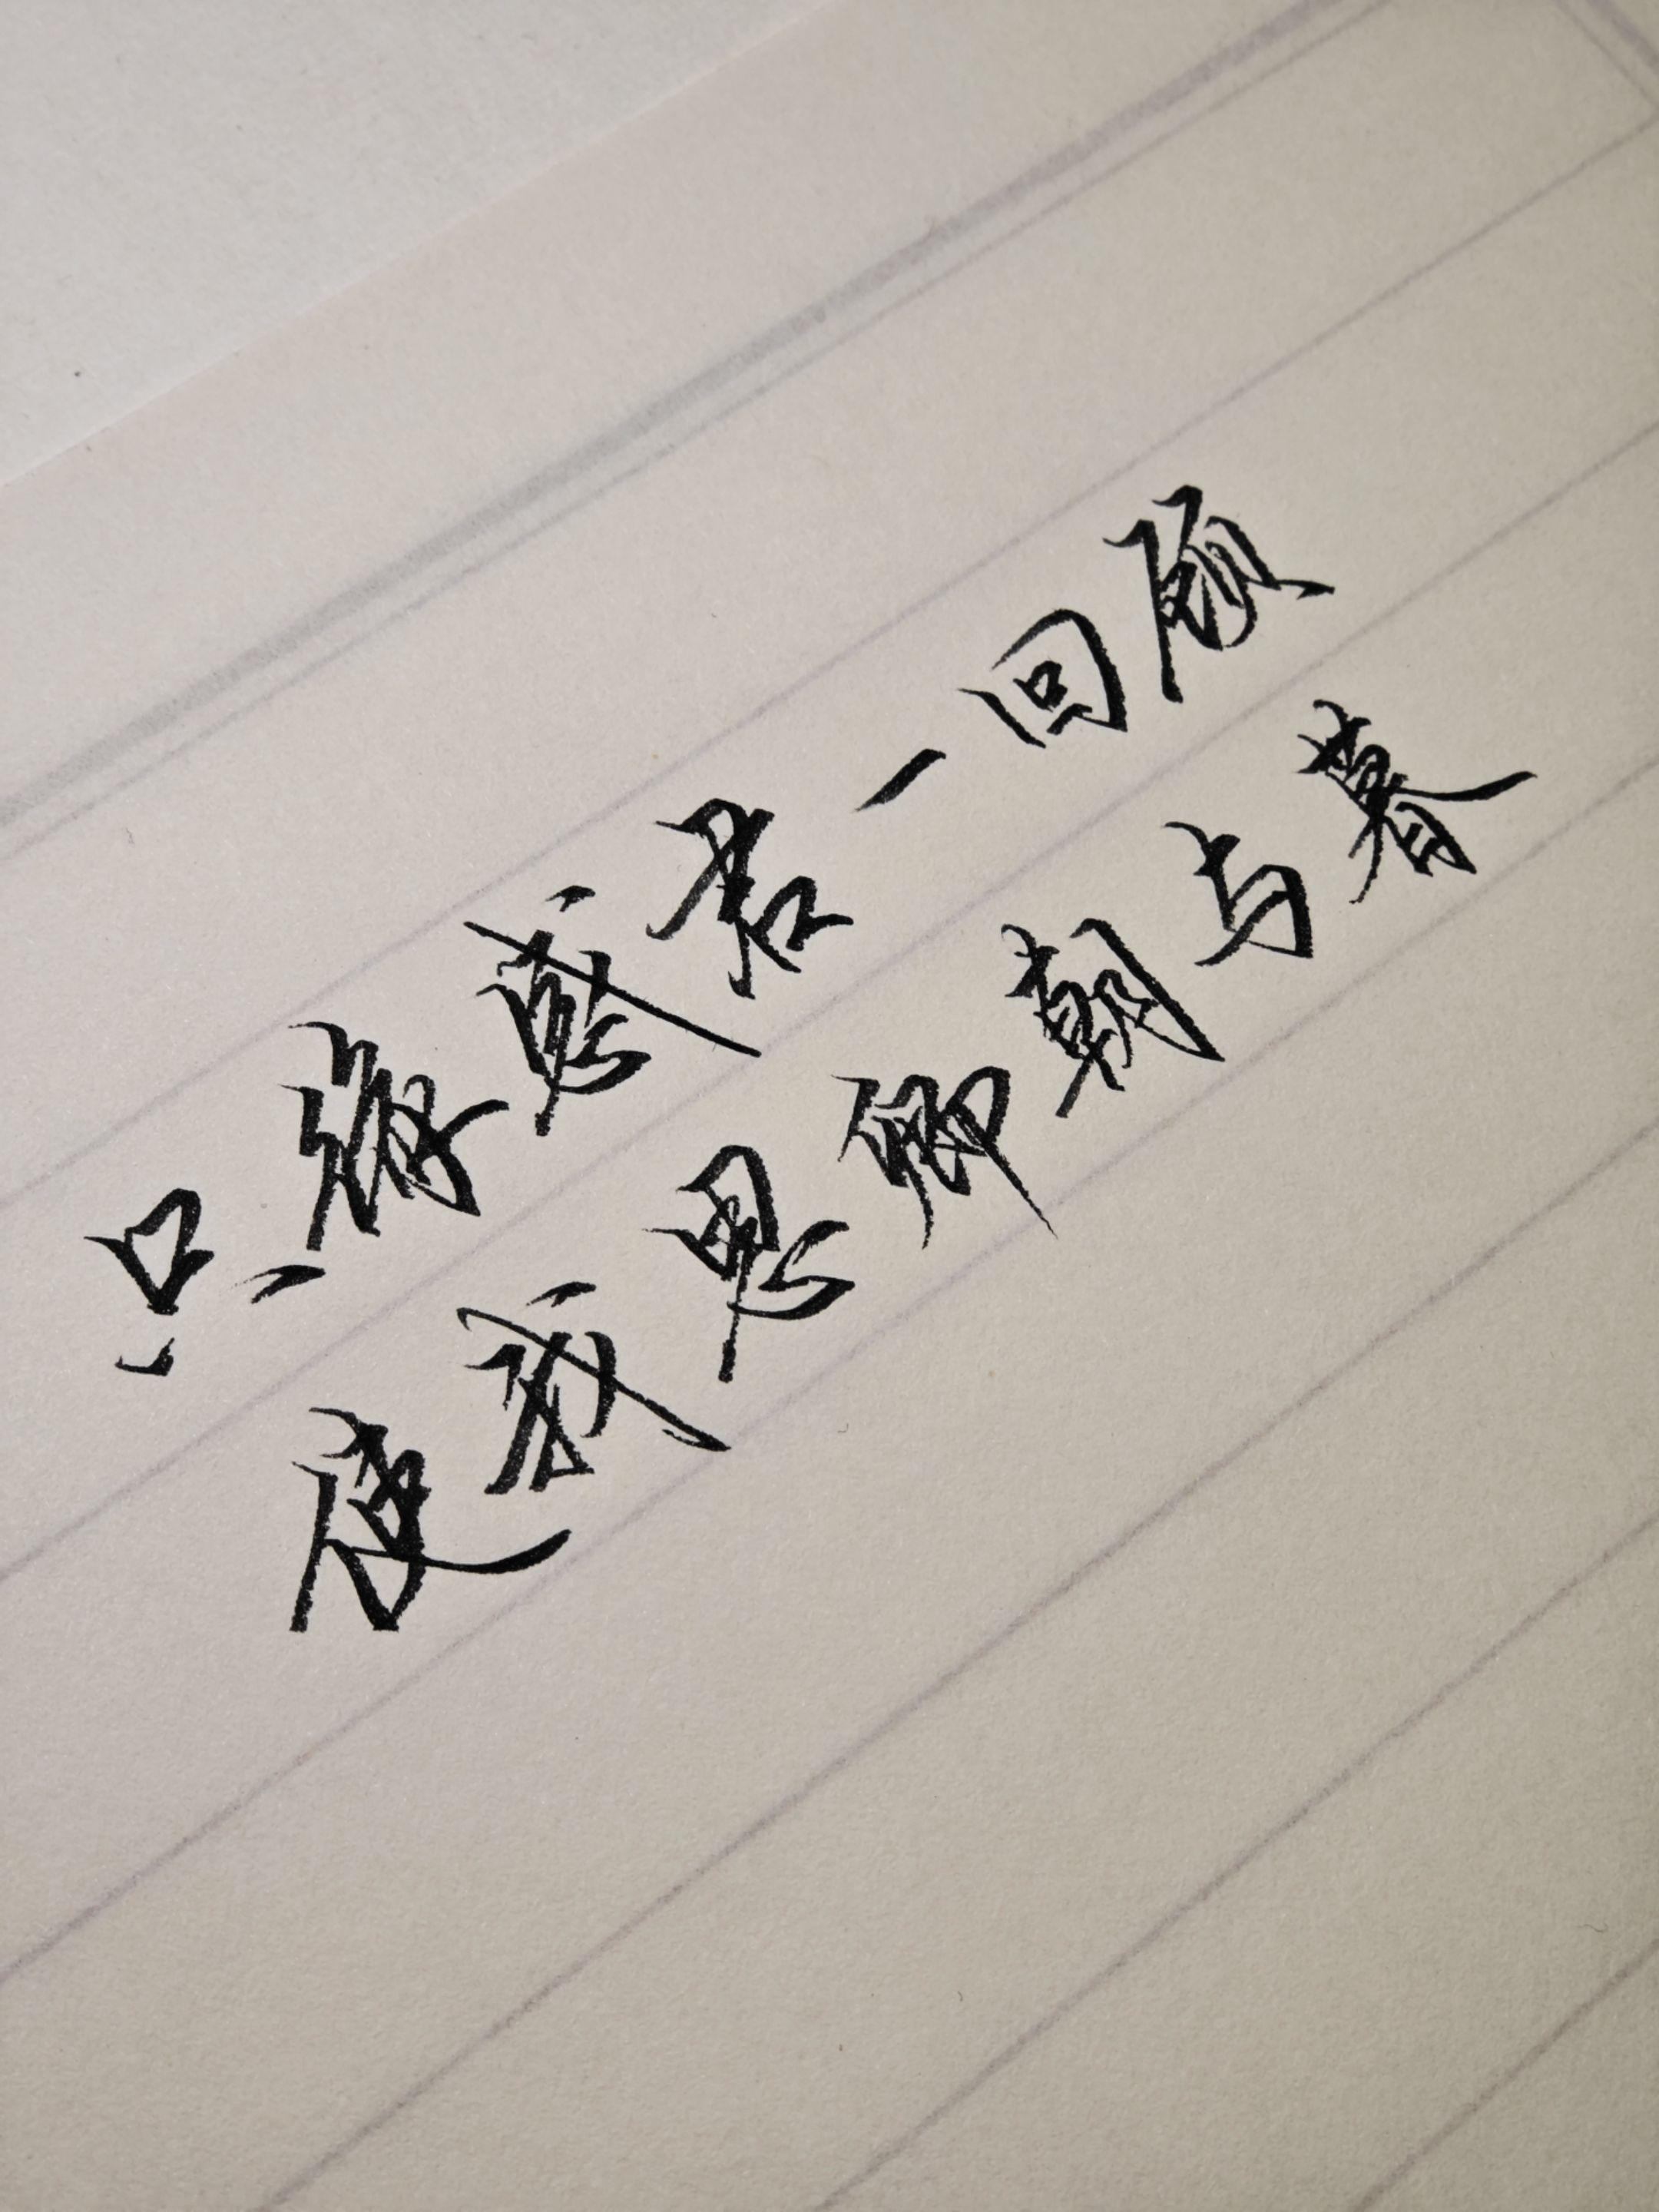 只缘感君一回顾
使我思卿朝与暮